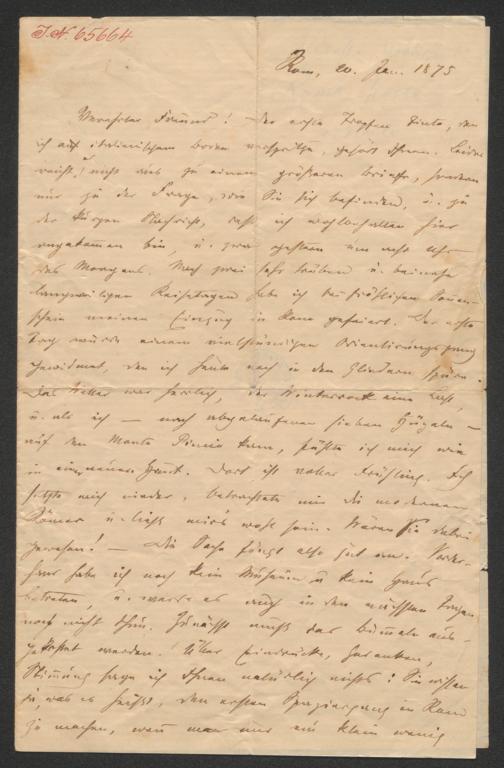 J. N. 65664
Rom, 20. Jan. 1875
Verehrter Freund! Der erste Tropfen Tinte, den
ich auf italienischem Boden verspritze, gehört Ihnen. Leider
reicht's nicht aus zu einem größeren Briefe, sondern
nur zu der Frage, wie Sie sich befinden, u. zu
der kurzen Nachricht, daß ich wohlbehalten hier
angekommen bin, u. zwar gestern um acht Uhr
des Morgens. Nach zwei sehr trüben u. beinahe
langweiligen Reisetagen habe ich bei fröhlichem Sonnen-
schein meinen Einzug in Rom gefeiert. Der erste
Tag wurde einem vielstündigen Orientirungsgang
gewidmet, den ich heute noch in den Gliedern spüre.
Das Wetter war herrlich, der Winterrock eine Last,
u. als ich – nach abgelaufenen sieben Hügeln –
auf den Monte Pincio kam, fühlte ich mich wie
in einer neuen Haut. Dort ist voller Frühling. Ich
setzte mich nieder, betrachtete mir die modernen
Römer u. ließ mir's wohl sein. Wären Sie dabei
gewesen! – Die Sache fängt also gut an. Vorder-
hand habe ich noch kein Museum u. kein Haus
betreten, u. werde es auch in den nächsten Tagen
noch nicht thun. Zunächst muß das Bummeln aus-
gekostet werden. Über Eindrücke, Gedanken,
Stimmung sage ich Ihnen natürlich nichts! Sie wissen
ja, was es heißt, den ersten Spaziergang in Rom
zu machen, wenn man nur ein klein wenig